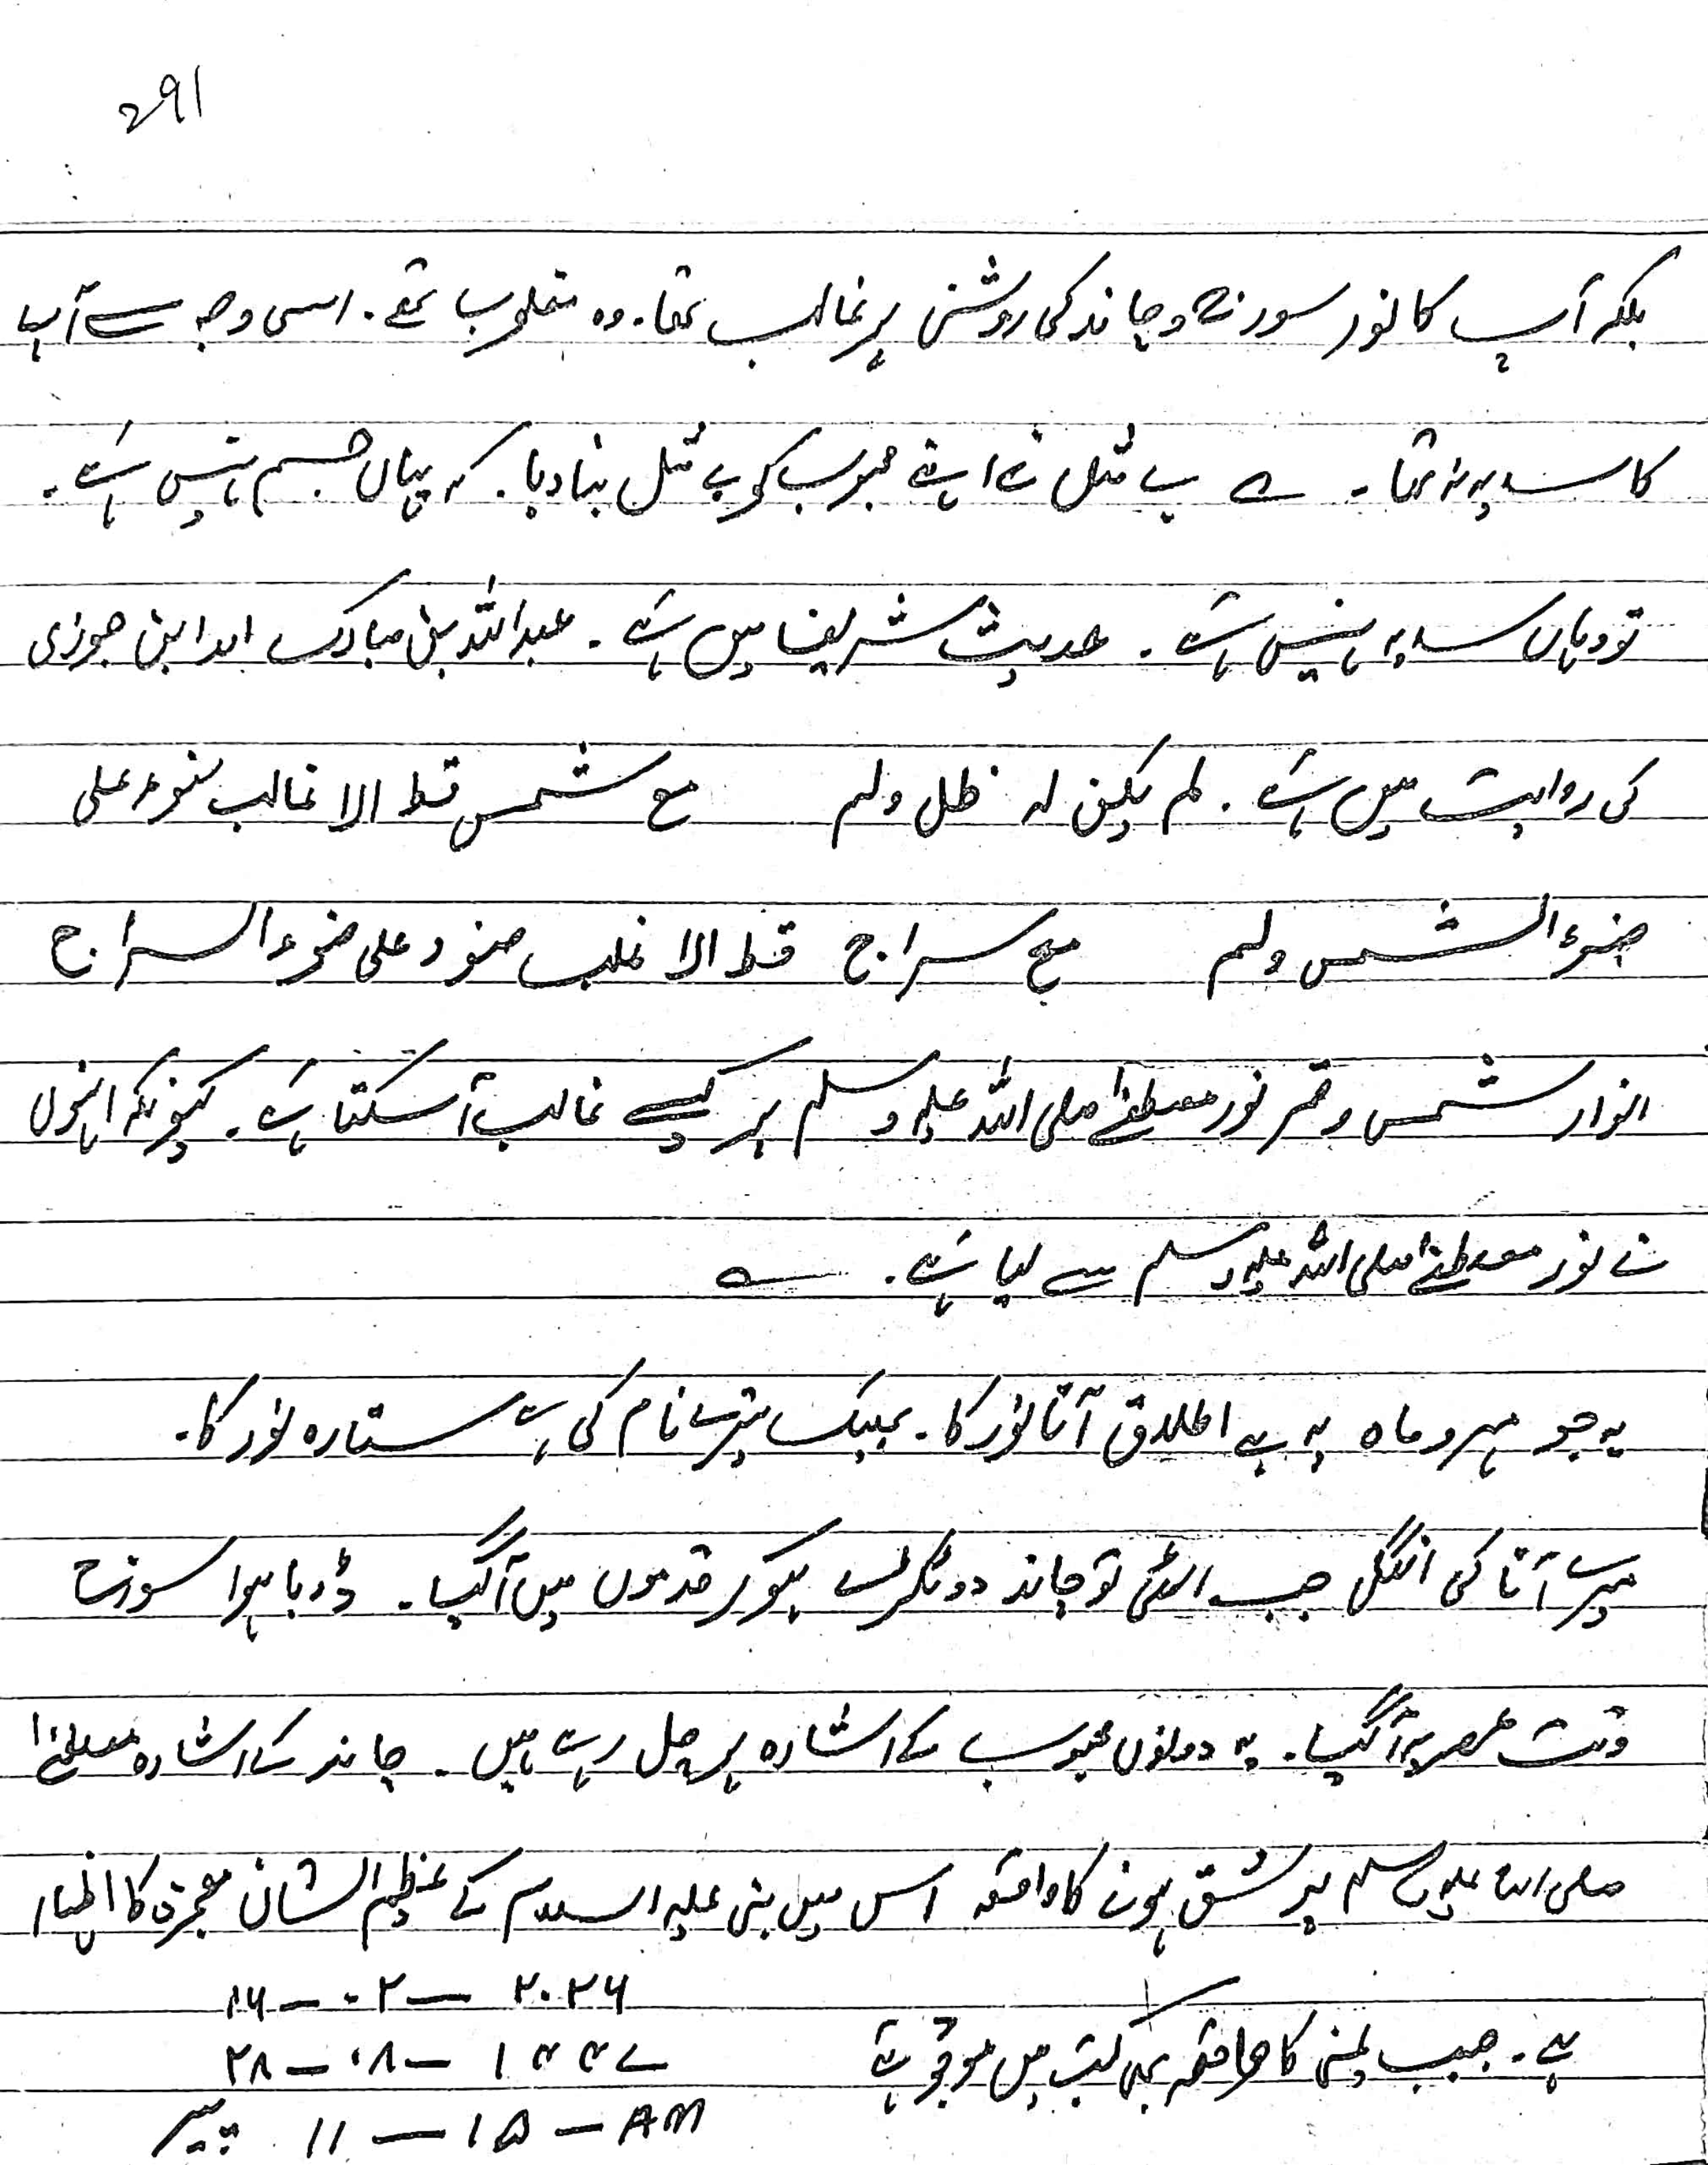 291
بلکہ آپ کا نور سورج و چاند کی روشنی پر غالب تھا۔ وہ مغلوب تھے۔ اسی وجہ سے آپ
کا سایہ نہ تھا۔ ے بے مثل نے اپنے محبوب کو بے مثل بنا دیا۔ کہ یہاں جسم نہیں ہے۔
تو وہاں سایہ نہیں ہے۔ حدیث شریف میں ہے۔ عبداللہ بن مبارک اور ابن جوزی
کی روایت میں ہے۔ لم یکن لہ ظل ولم مع شمس قط الا غالب ضوءہ علی
ضوء الشمس ولم مع سراج قط الا غلب ضوءہ علی ضوء السراج
انوار شمس و قمر نور مصطفےٰ صلی اللہ علیہ وسلم پر کیسے غالب آسکتا ہے۔ کیونکہ انہوں
نے نور مصطفےٰ صلی اللہ علیہ وسلم سے لیا ہے۔ ے
یہ جو مہر و ماہ پہ ہے اطلاق آتا نور کا۔ بھیک تیرے نام کی ہے ستارہ نور کا۔
میرے آقا کی انگلی جب اٹھی تو چاند دو ٹکڑے ہو کر قدموں میں آگیا۔ ڈوبا ہوا سورج
وقت عصر پہ آگیا۔ یہ دونوں محبوب کے اشارہ پر چل رہے ہیں۔ چاند کے اشارہ مصطفےٰ
صلی اللہ علیہ وسلم پر شق ہونے کا واقعہ اس میں نبی علیہ السلام کے عظیم الشان معجزہ کا اظہار
ہے۔ حبیب یمنی کا واقعہ بھی کتب میں موجود ہے
۱۶ – ۰۲ – ۲۰۲۶
۲۸ – ۰۸ – ۱۴۴۷
پیر ۱۱ – ۱۵ – AM